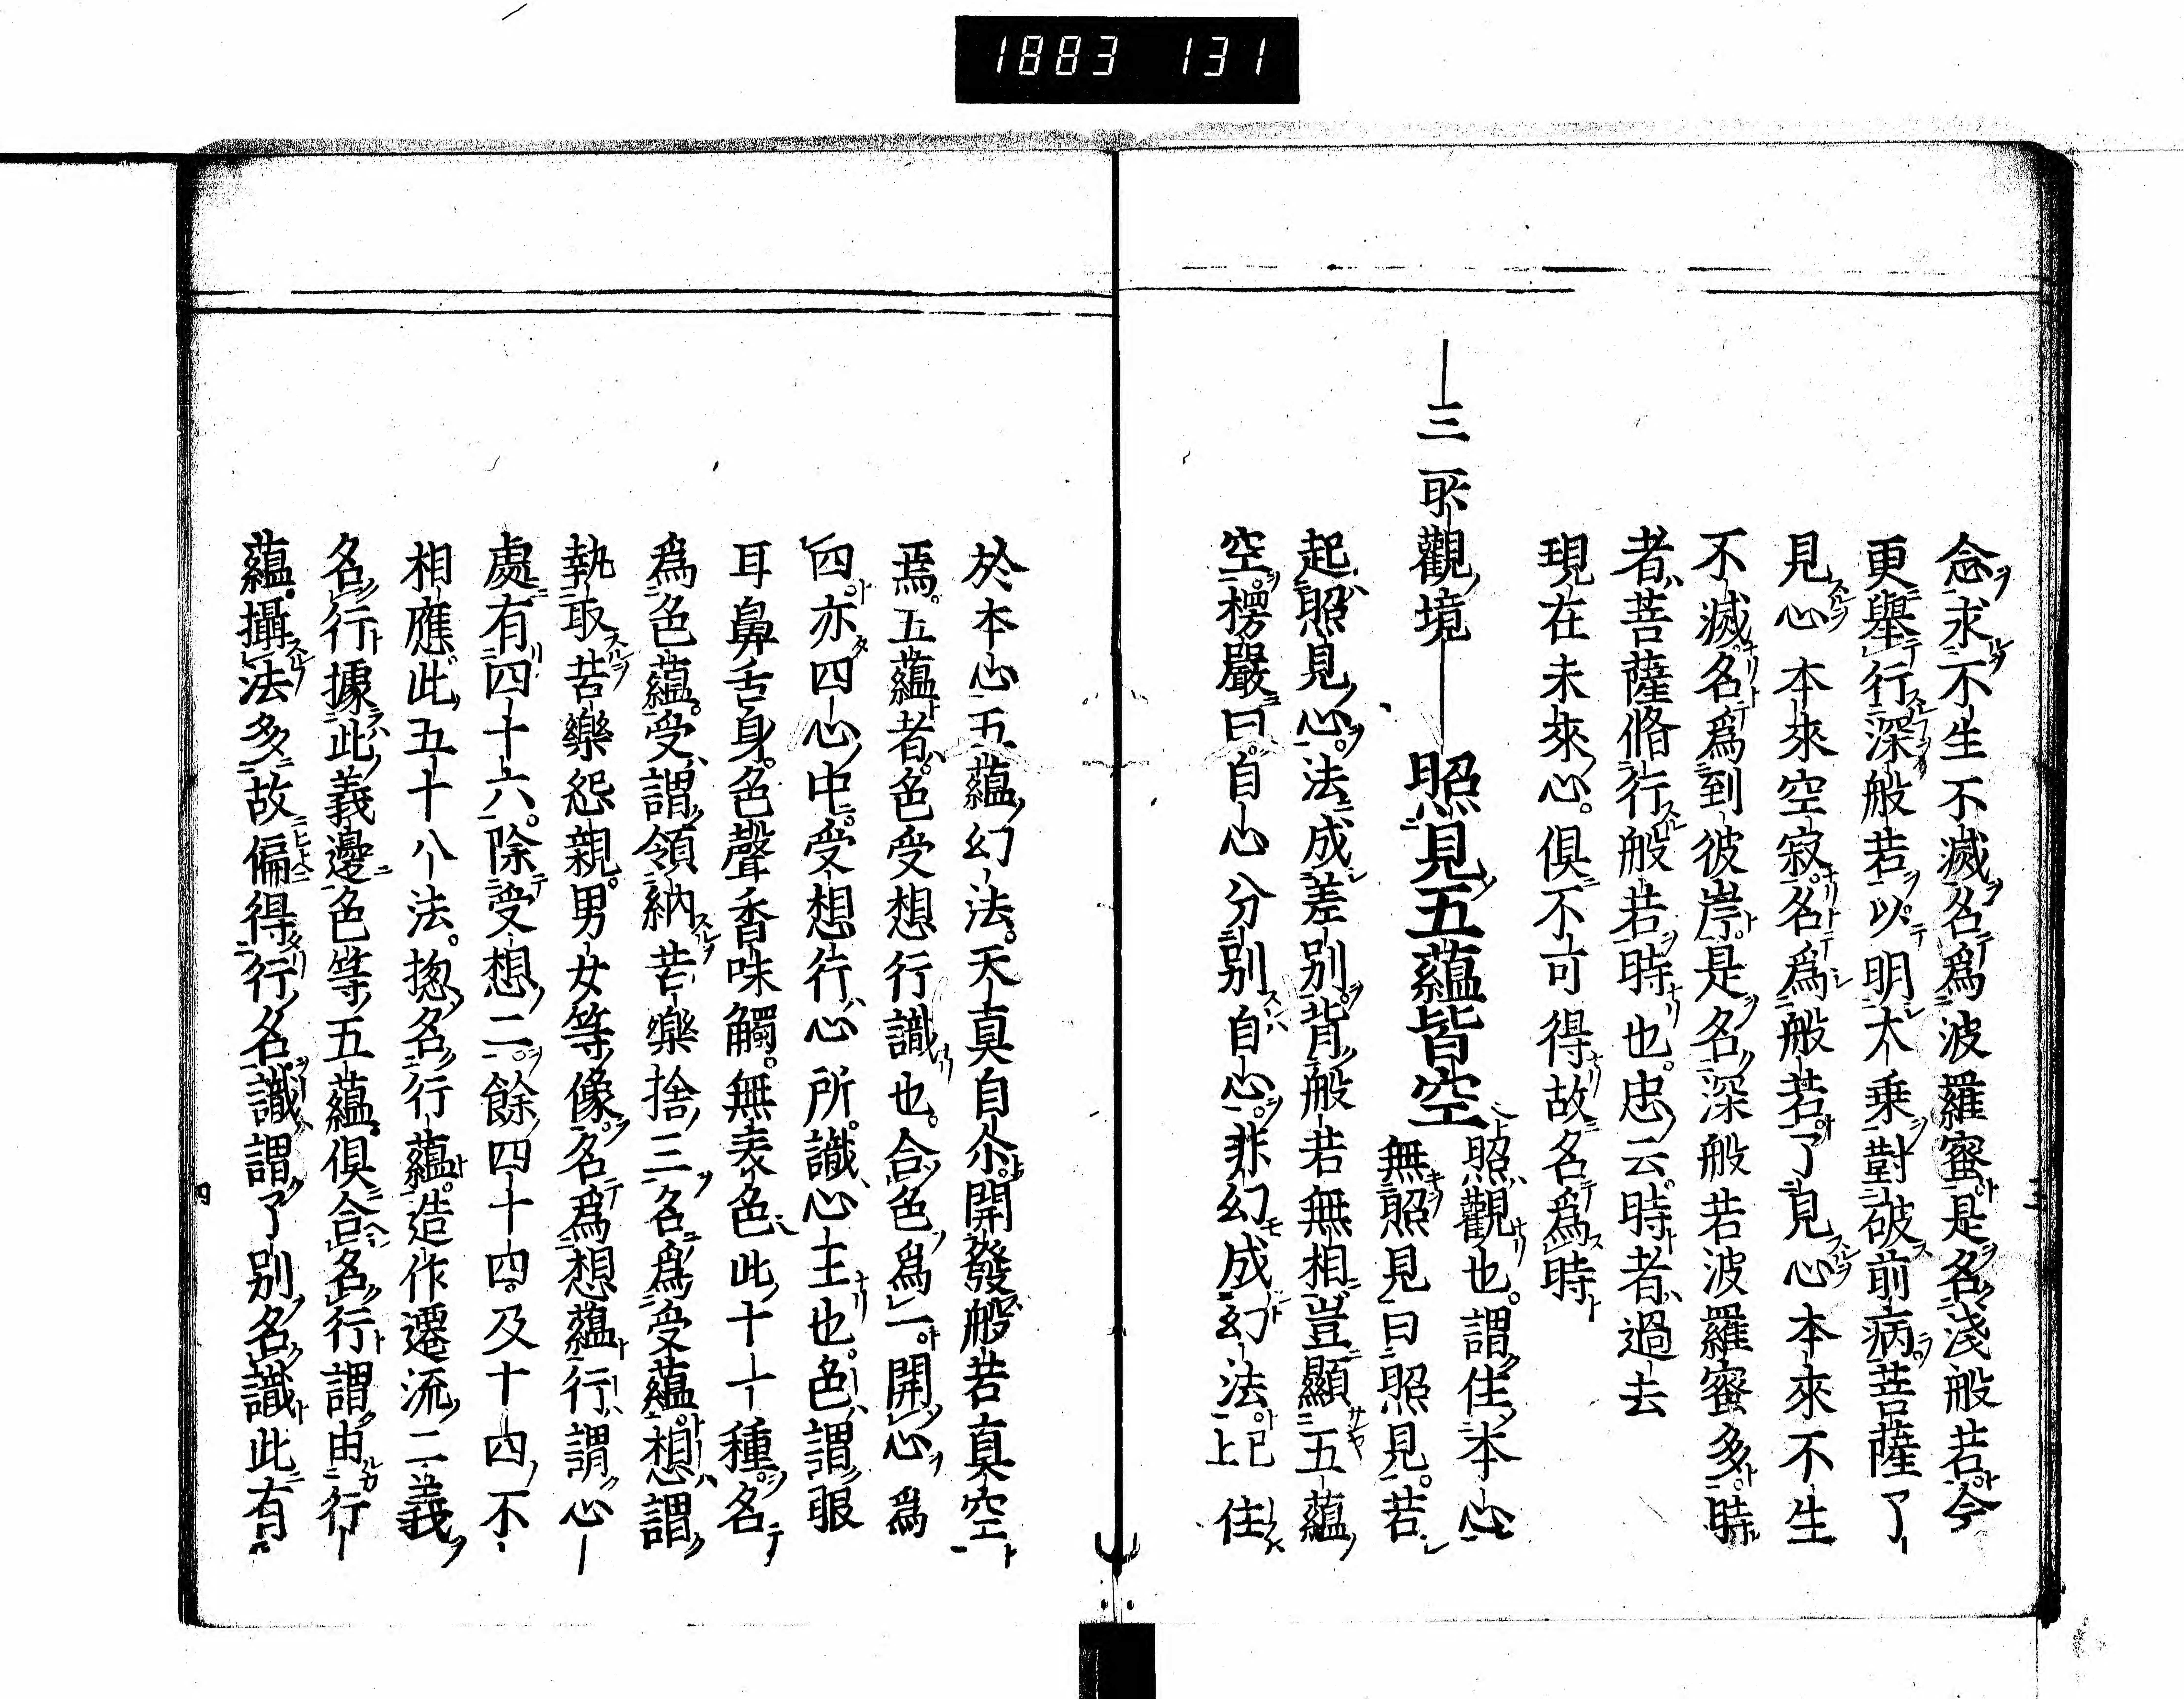 1883 131
念求不生不滅名爲波羅蜜是名淺般若今
更舉行深般若以明大乘對破前病菩薩了
見心本來空寂名爲般若了見心本來不生
不滅名爲到彼岸是名深般若波羅蜜多時
者菩薩脩行般若時也忠云時者過去
現在未來心俱不可得故名爲時
三所觀境 照見五蘊皆空 照觀也謂住本心
無照見曰照見若
起照見心法成差別背般若無相豈顯五蘊
空楞嚴曰自心分別自心非幻成幻法已上住
於本心五蘊幻法天真自尒開發般若真空
焉五蘊者色受想行識也合色爲一開心爲
四亦四心中受想行心所識心主也色謂眼
耳鼻舌身色聲香味觸無表色此十一種名
爲色蘊受謂領納苦樂捨三名爲受蘊想謂
執取苦樂怨親男女等像名爲想蘊行謂心
處有四十六除受想二餘四十四及十四不
相應此五十八法揔名行蘊造作遷流二義
名行據此義邊色等五蘊俱合名行謂由行
蘊攝法多故偏得行名識謂了別名識此有